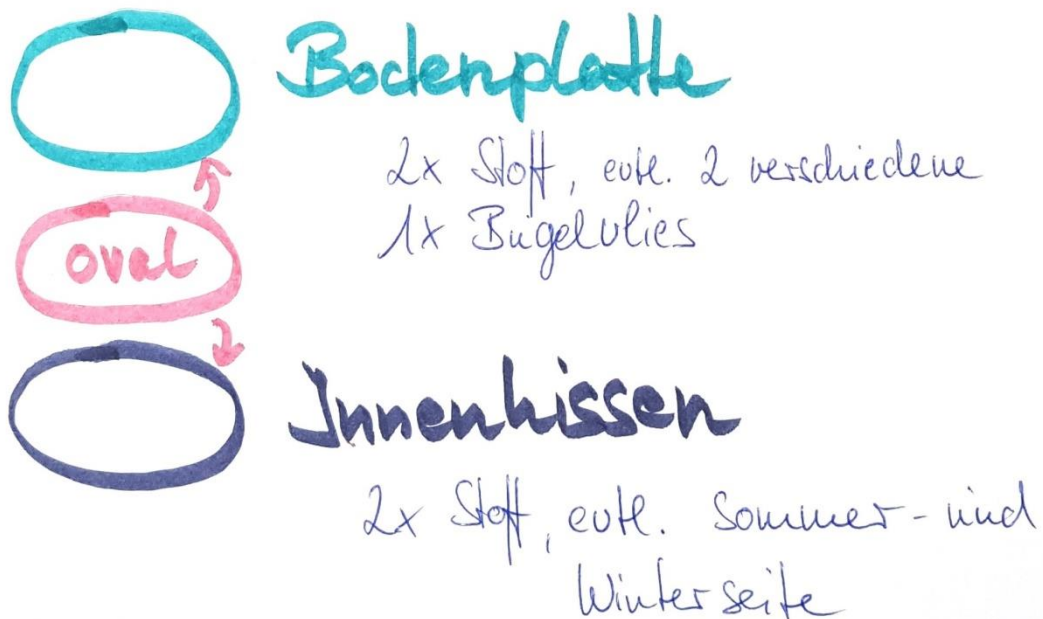 Bodenplatte
2x Stoff, evtl. 2 verschiedene
1x Bügelvlies
oval
Innenkissen
2x Stoff, evtl. Sommer- und
Winterseite